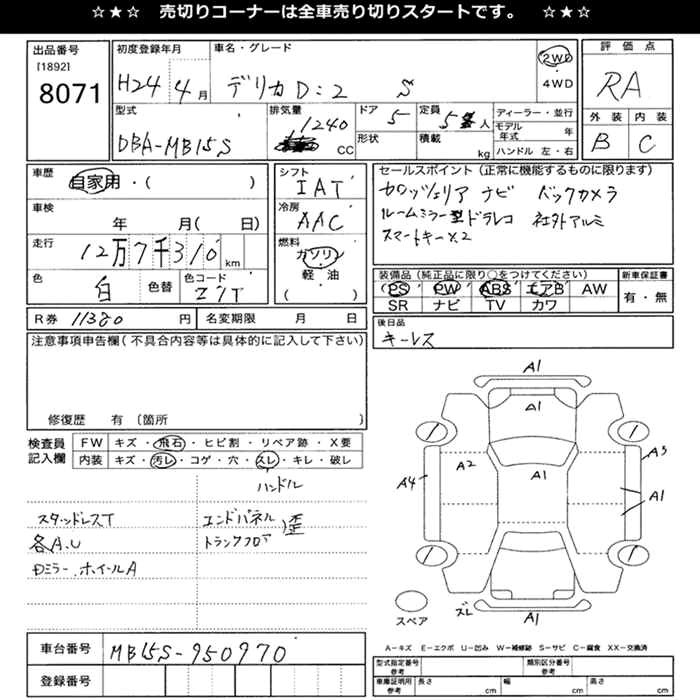 ☆★☆ 売切りコーナーは全車売り切りスタートです。 ☆★☆
出品番号
[1892]
8071
初度登録年月
H24 4月
車名・グレード
デリカD:2 S
2WD
4WD
評価点
RA
外装 内装
B C
型式
DBA-MB15S
排気量
1240
CC
ドア
5
形状
定員
5 人
積載
kg
ディーラー・並行
モデル年式 年
ハンドル 左・右
車歴
自家用・( )
車検
年 月( 日)
走行
12万7千310 km
色
白
色替
色コード
Z7T
シフト
IAT
冷房
AAC
燃料
ガソリン
軽・油
( )
セールスポイント(正常に機能するものに限ります)
カロッツェリア ナビ バックカメラ
ルームミラー型ドラレコ 社外アルミ
スマートキー×2
装備品(純正品に限り○をつけてください)
PS PW ABS エアB AW
SR ナビ TV カワ
新車保証書
有・無
R券 11380 円
名変期限 月 日
後日品
キーレス
注意事項申告欄(不具合内容等は具体的に記入して下さい)
修復歴 有 〔箇所
検査員記入欄
FW キズ・飛石・ヒビ割・リペア跡・X要
内装 キズ・汚レ・コゲ・穴・スレ・キレ・破レ
ハンドル
スタッドレスT
各A.U
Dミラー.ホイールA
エンドパネル
トランクフロア
歪
A1
A1
A2
A1
A3
A4
A1
ズレ
A1
スペア
A-キズ E-エクボ U-凹み W-補修跡 S-サビ C-腐食 XX-交換済
車台番号
MB15S-950970
登録番号
型式指定番号 参考
類別区分番号 参考
車庫証明用 参考
長さ cm
幅 cm
高さ cm